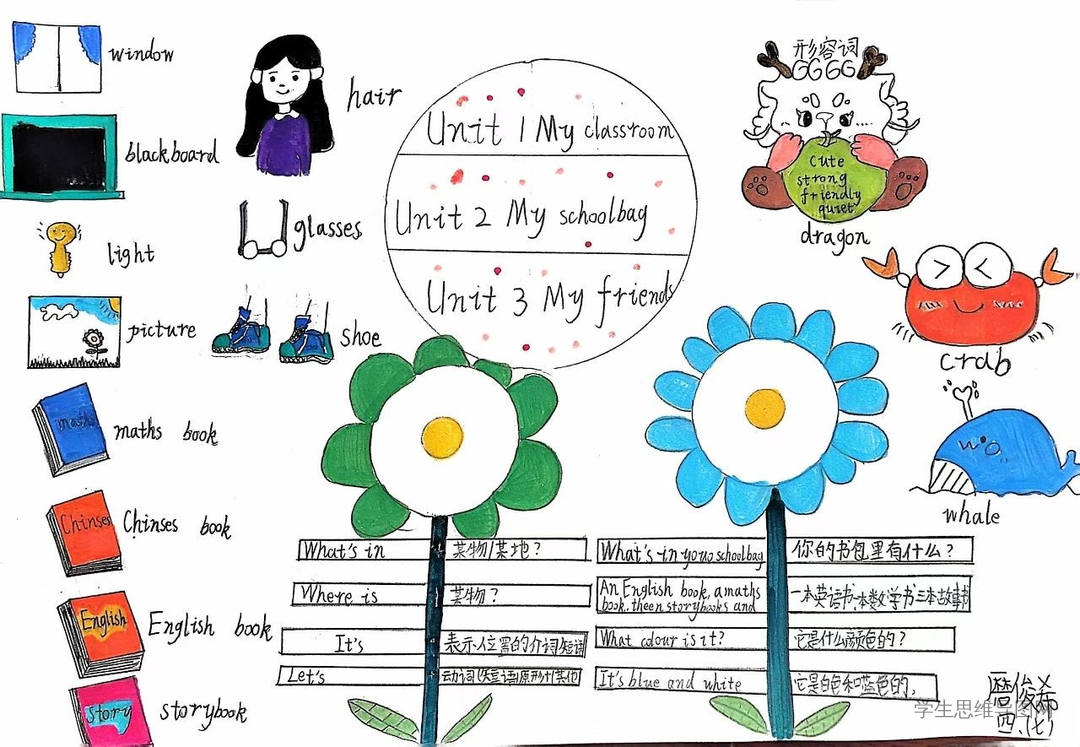 window
blackboard
light
picture
maths
maths book
Chinses
Chinses book
English
English book
Story
storybook
hair
glasses
shoe
Unit 1 My classroom
Unit 2 My schoolbag
Unit 3 My friends
形容词
GGGG
Cute
strong
friendly
quiet
dragon
crab
whale
What's in 某物/某地?
Where is 某物?
It's 表示位置的介词短语
Let's 动词(短语)原形+其他
What's in your schoolbag 你的书包里有什么?
An English book, a maths
book, theen storybooks and
一本英语书一本数学书三本故事书
What colour is it? 它是什么颜色的?
It's blue and white 它是白色和蓝色的,
俊希
四、(七)